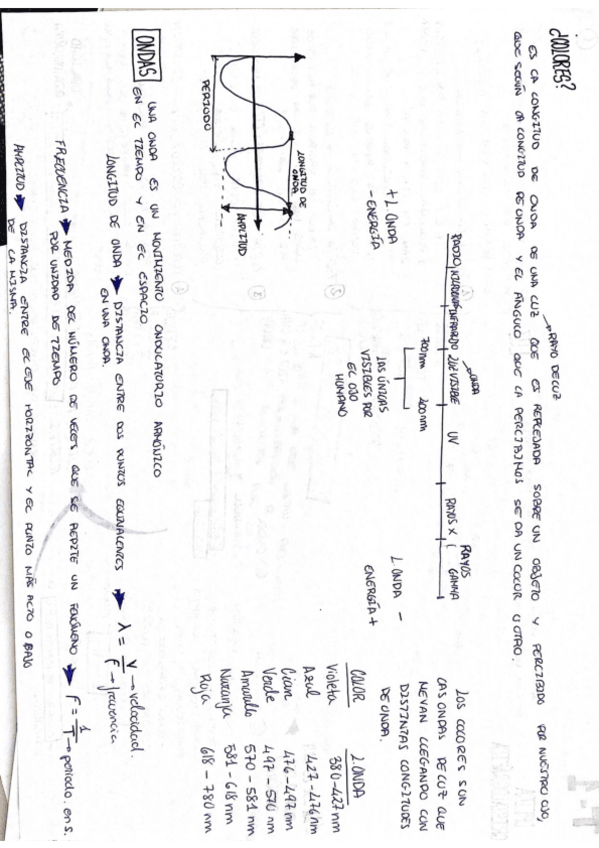 ¿COLORES?
ES LA LONGITUD DE ONDA DE UNA LUZ QUE ES REFLEJADA SOBRE UN OBJETO Y PERCIBIDO POR NUESTRO OJO,
RAYO DE LUZ
QUE SEGÚN LA LONGITUD DE ONDA Y EL ÁNGULO QUE LA PERCIBIMOS SE DA UN COLOR U OTRO.
ONDA
RADIO MICROONDAS INFRARROJO LUZ VISIBLE UV RAYOS X RAYOS GAMMA
700nm 400nm
+ L. ONDA
- ENERGÍA
LAS ÚNICAS
VISIBLES POR
EL OJO
HUMANO
L. ONDA -
ENERGÍA +
LOS COLORES SON
LAS ONDAS DE LUZ QUE
LLEGANDO CON
DISTINTAS LONGITUDES
DE ONDA.
COLOR L. ONDA
Violeta 380-427nm
Azul 427-476nm
Cian 476-497nm
Verde 497-570nm
Amarillo 570-581nm
Naranja 581-618nm
Roja 618-780nm
LONGITUD DE
ONDA
AMPLITUD
PERIODO
ONDAS UNA ONDA ES UN MOVIMIENTO ONDULATORIO ARMÓNICO
EN EL TIEMPO Y EN EL ESPACIO
LONGITUD DE ONDA → DISTANCIA ENTRE DOS PUNTOS EQUIVALENTES → λ = v/f → velocidad. → frecuencia
EN UNA ONDA.
FRECUENCIA → MEDIDA DEL NÚMERO DE VECES QUE SE REPITE UN FENÓMENO → F = 1/T → periodo. en s.
POR UNIDAD DE TIEMPO
AMPLITUD → DISTANCIA ENTRE EL EJE HORIZONTAL Y EL PUNTO MÁS ALTO O BAJO
DE LA MISMA.